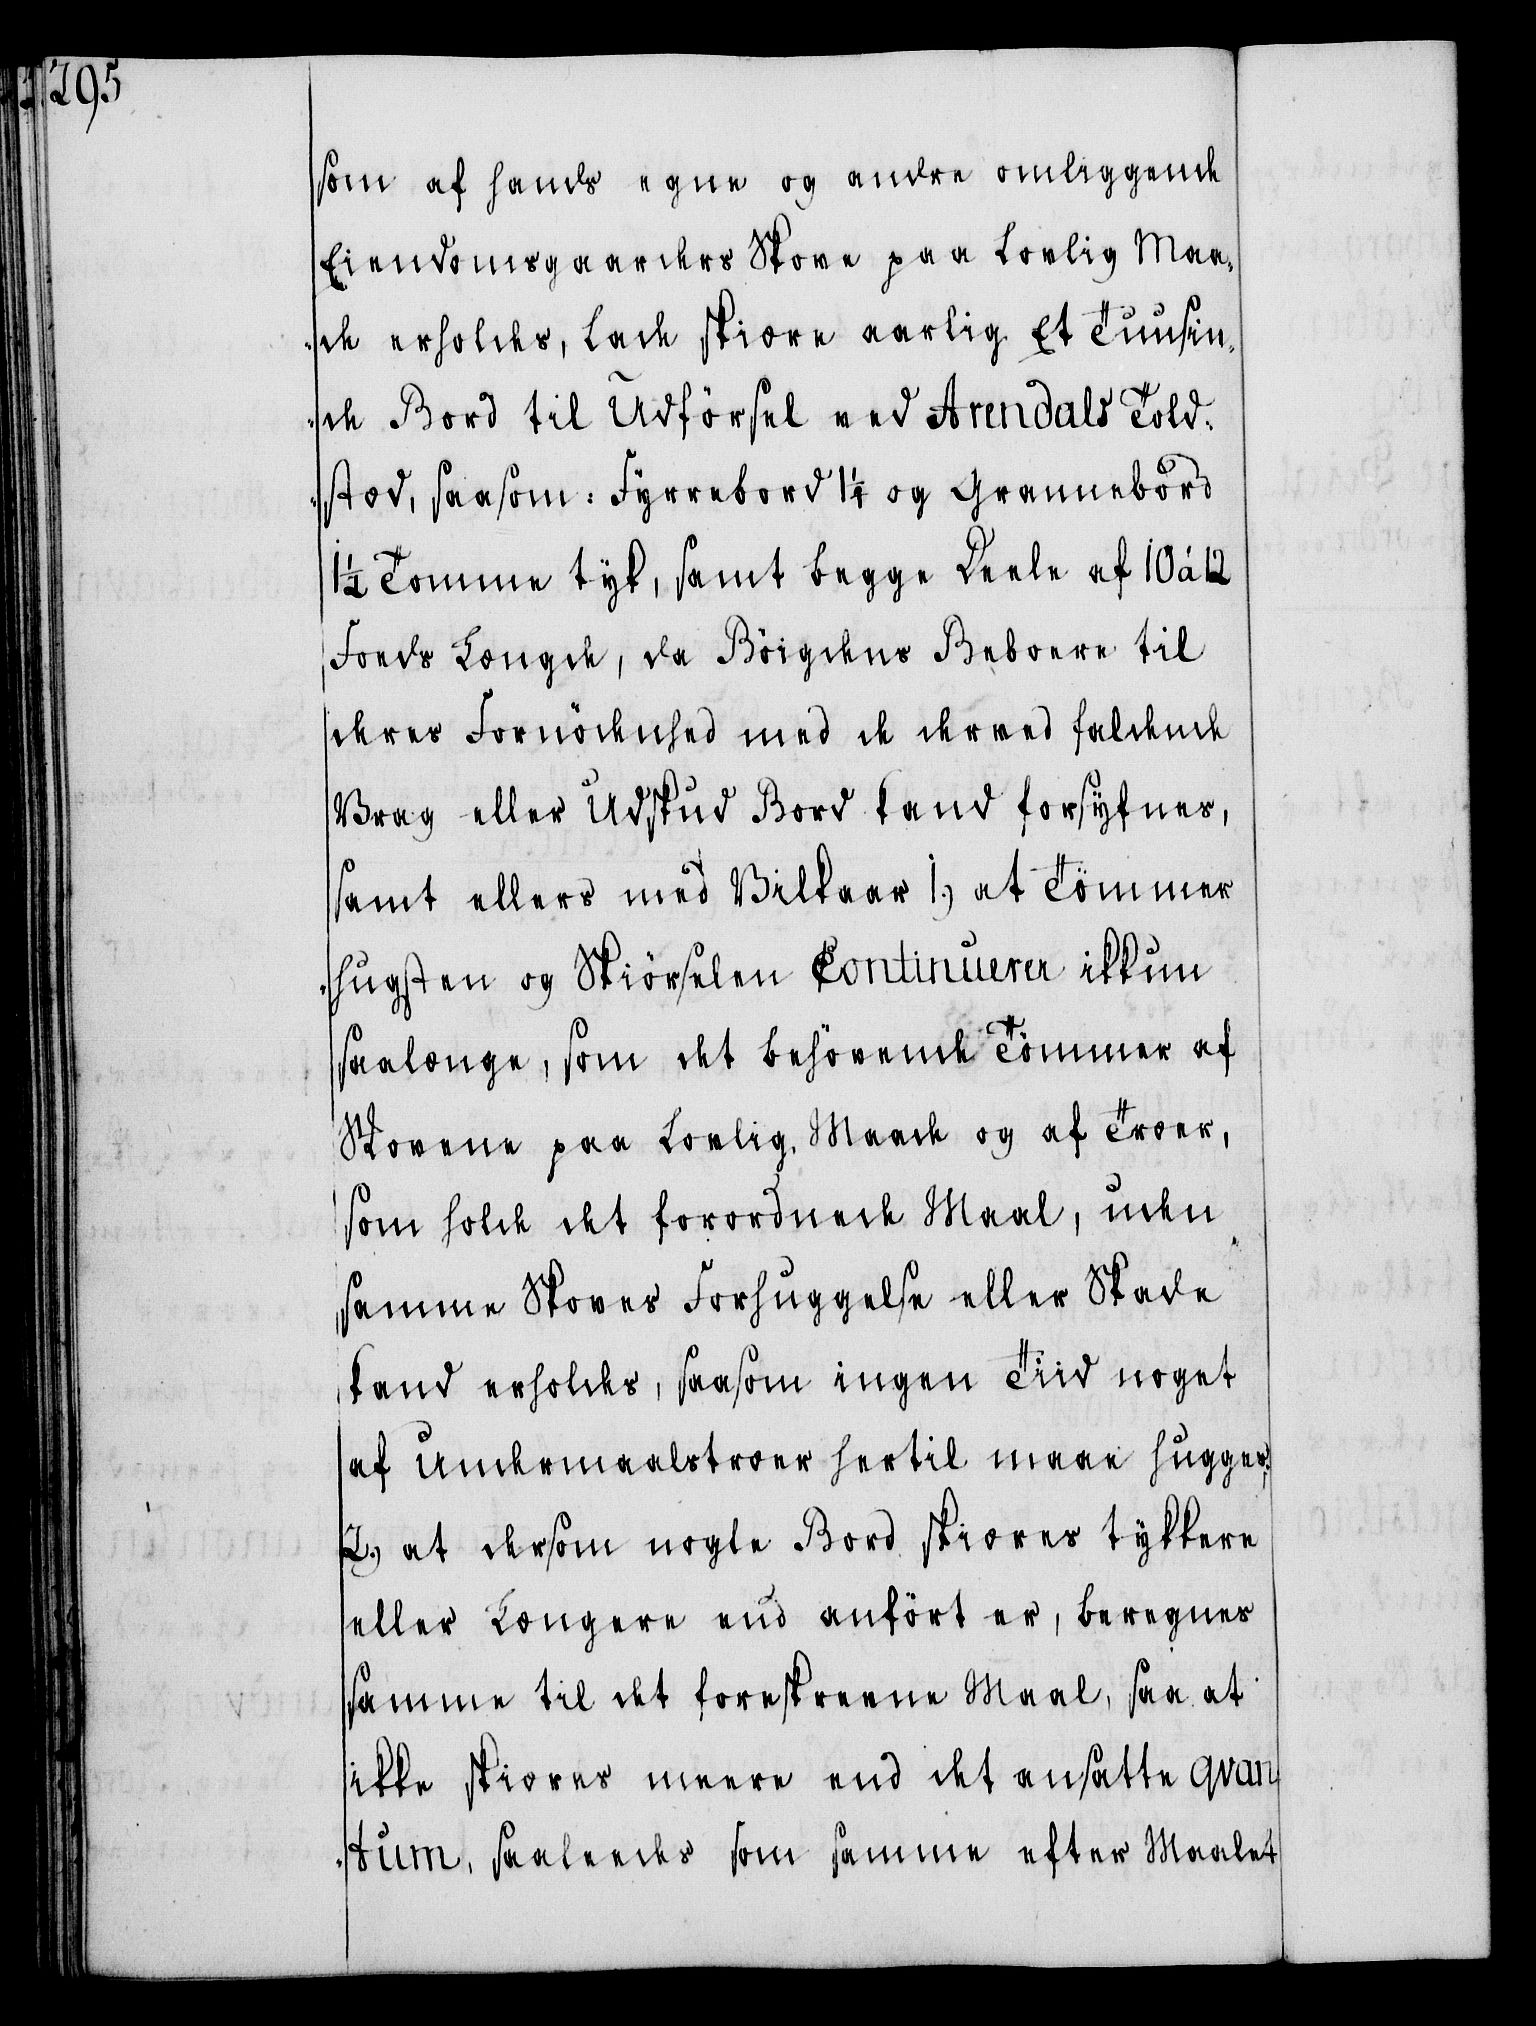 295
som af hands egne og andre omliggende
Eiendomsgaarders Skove paa Lovlig Maa-
de erholdes, lade skiære aarlig Et Tuusin-
de Bord til Udförsel ved Arendals Told-
stæd, saasom: Fyrrebord 1¼ og Grannebord
1½ Tomme tyk, samt begge Deele af 10 à 12
Foeds Længde, da Böigdens Beboere til
deres Fornödenhed med de derved faldende
Vrag eller Udskud Bord kand forsyfnes,
samt ellers med Vilkaar 1.) at Tömmer
hugsten og Skiörselen Continuerer ikkun
saalænge, som det behövende Tömmer af
Skovene paa Lovlig Maade og af Træer,
som holde det forordnede Maal, uden
samme Skoves Forhuggelse eller Skade
kand erholdes, saasom ingen Tiid noget
af Undermaalstræer hertil maae hugges;
2.) at dersom nogle Bord skiæres tÿkkere
eller Længere end anfört er, beregnes
samme til det foreskrevne Maal, saa at
ikke skiæres meere end det ansatte qvan
tum, saaleedes som samme efter Maalet